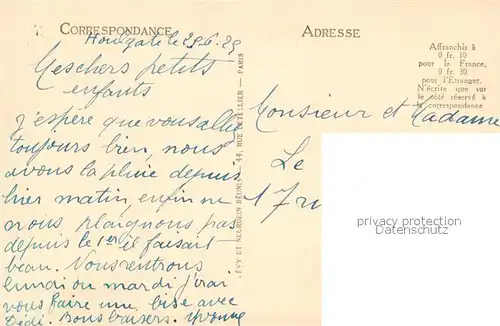 CORRESPONDANCE
Houlgate le 29.6.29
Mes chers petits
enfants
J'espère que vous allez
toujours bien, nous
avons la pluie depuis
hier matin, enfin ne
nous plaignons pas
depuis le 1er il faisait
beau. Nous rentrons
lundi ou mardi j'irai
vous faire une bise avec
Dédé. Bons baisers. Yvonne
LÉVY ET NEURDEIN RÉUNIS — 44, RUE LETELLIER — PARIS
ADRESSE
Affranchir à
0 fr. 10
pour la France,
0 fr. 30
pour l'Etranger.
N'écrire que sur
le côté réservé à
la correspondance
Monsieur et Madame
Le
17 ru
privacy protection
Datenschutz